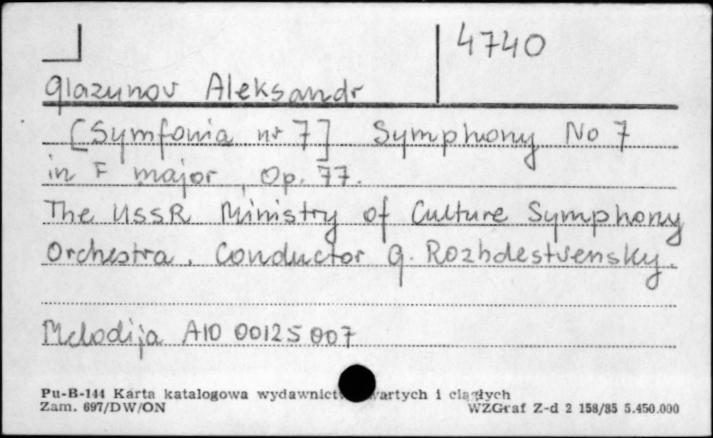 4740
Glazunov Aleksandr
[Symfonia nr 7] Symphony No 7
in F major, Op. 77.
The USSR Ministry of Culture Symphony
Orchestra. Conductor G. Rozhdestvensky.
Melodija A10 00125 007
Pu-B-144 Karta katalogowa wydawnict wartych i ciągłych
Zam. 697/DW/ON WZGraf Z-d 2 158/85 5.450.000